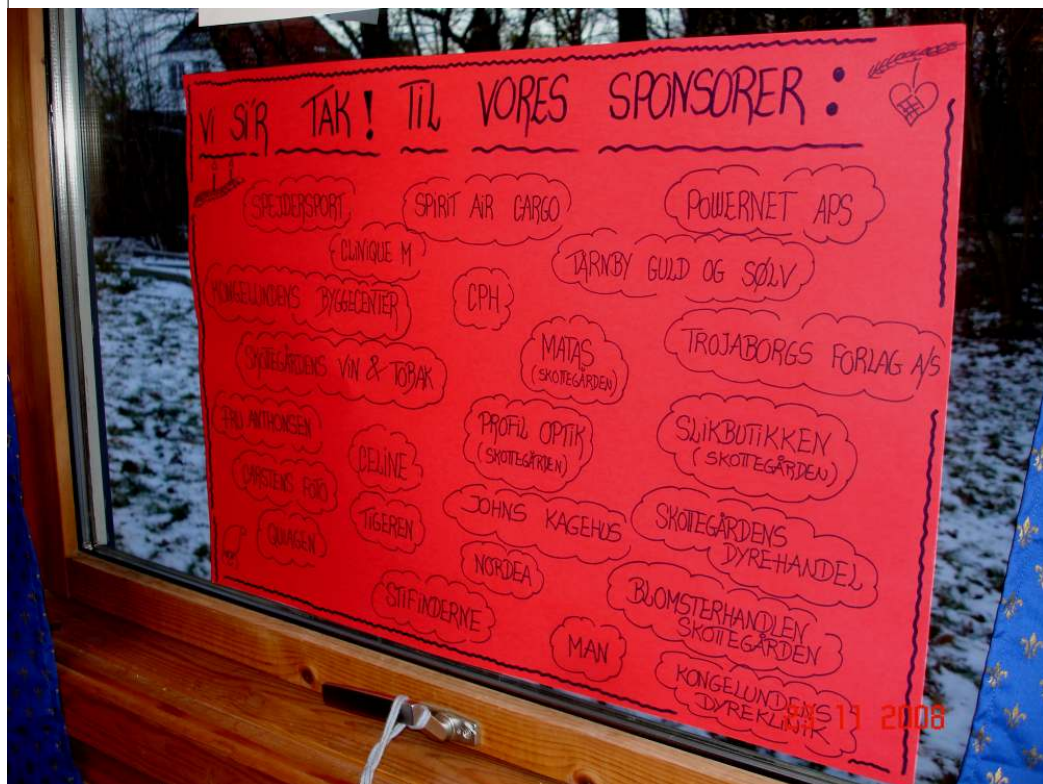 VI SI'R TAK! TIL VORES SPONSORER:
SPEJDERSPORT
SPIRIT AIR CARGO
POWERNET APS
CLINIQUE M
TÅRNBY GULD OG SØLV
KONGELUNDENS BYGGECENTER
CPH
MATAS
(SKOTTEGÅRDEN)
TROJABORGS FORLAG A/S
SKOTTEGÅRDENS VIN & TOBAK
FRU ANTHONSEN
CELINE
PROFIL OPTIK
(SKOTTEGÅRDEN)
SLIKBUTIKKEN
(SKOTTEGÅRDEN)
CARSTENS FOTO
TIGEREN
JOHNS KAGEHUS
SKOTTEGÅRDENS
DYREHANDEL
QUIAGEN
NORDEA
STIFINDERNE
BLOMSTERHANDLEN
SKOTTEGÅRDEN
MAN
KONGELUNDENS
DYREKLINIK
23 11 2008